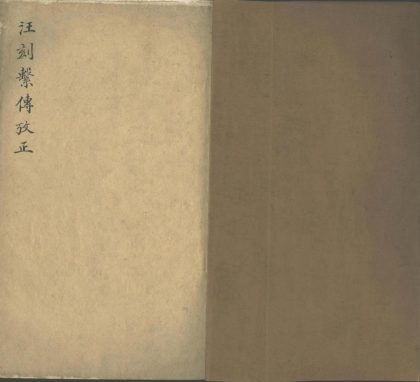 汪刻繫傳攷正